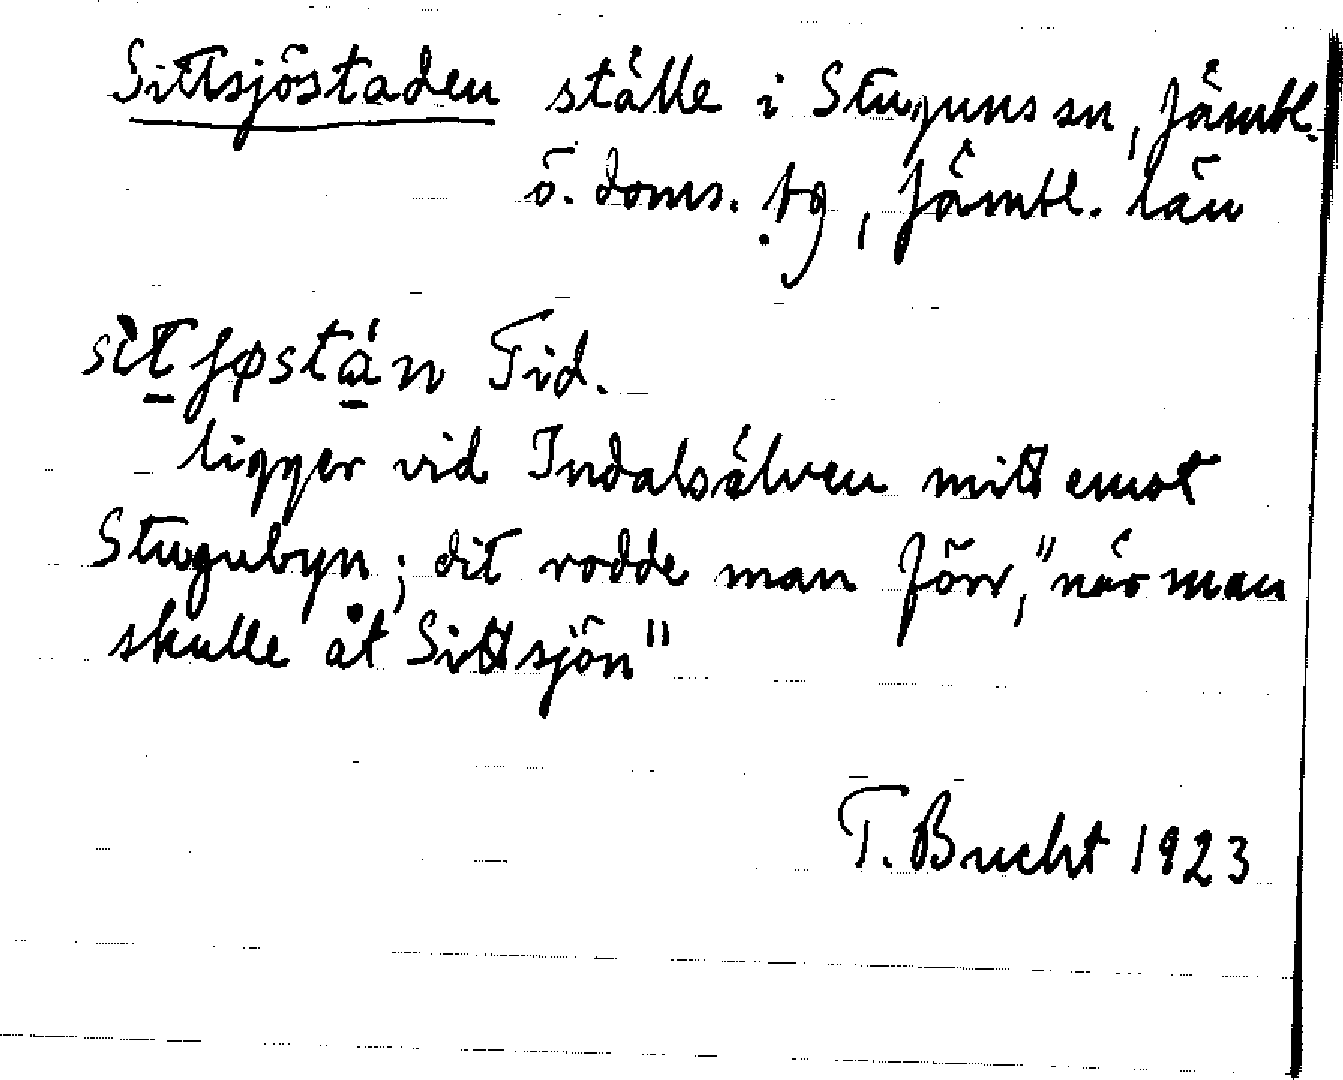 Sittsjöstaden ställe i Stuguns sn, Jämtl.
ö. doms. tg, Jämtl. län
Tid.
ligger vid Indalsälven mitt emot
Stugubyn; dit rodde man förr, "när man
skulle åt Sittsjön"
T. Bucht 1923